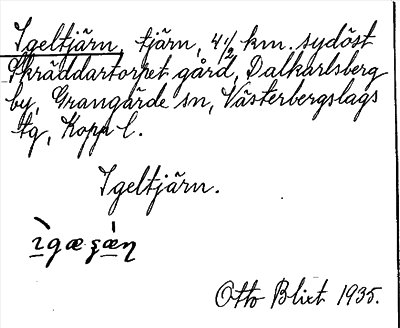 Igeltjärn, tjärn, 4 1/2 km. sydöst
Skräddartorpet gård, Dalkarlsberg
by, Grangärde sn, Västerbergslags
tg, Kopp l.
Igeltjärn.
Otto Blixt 1935.